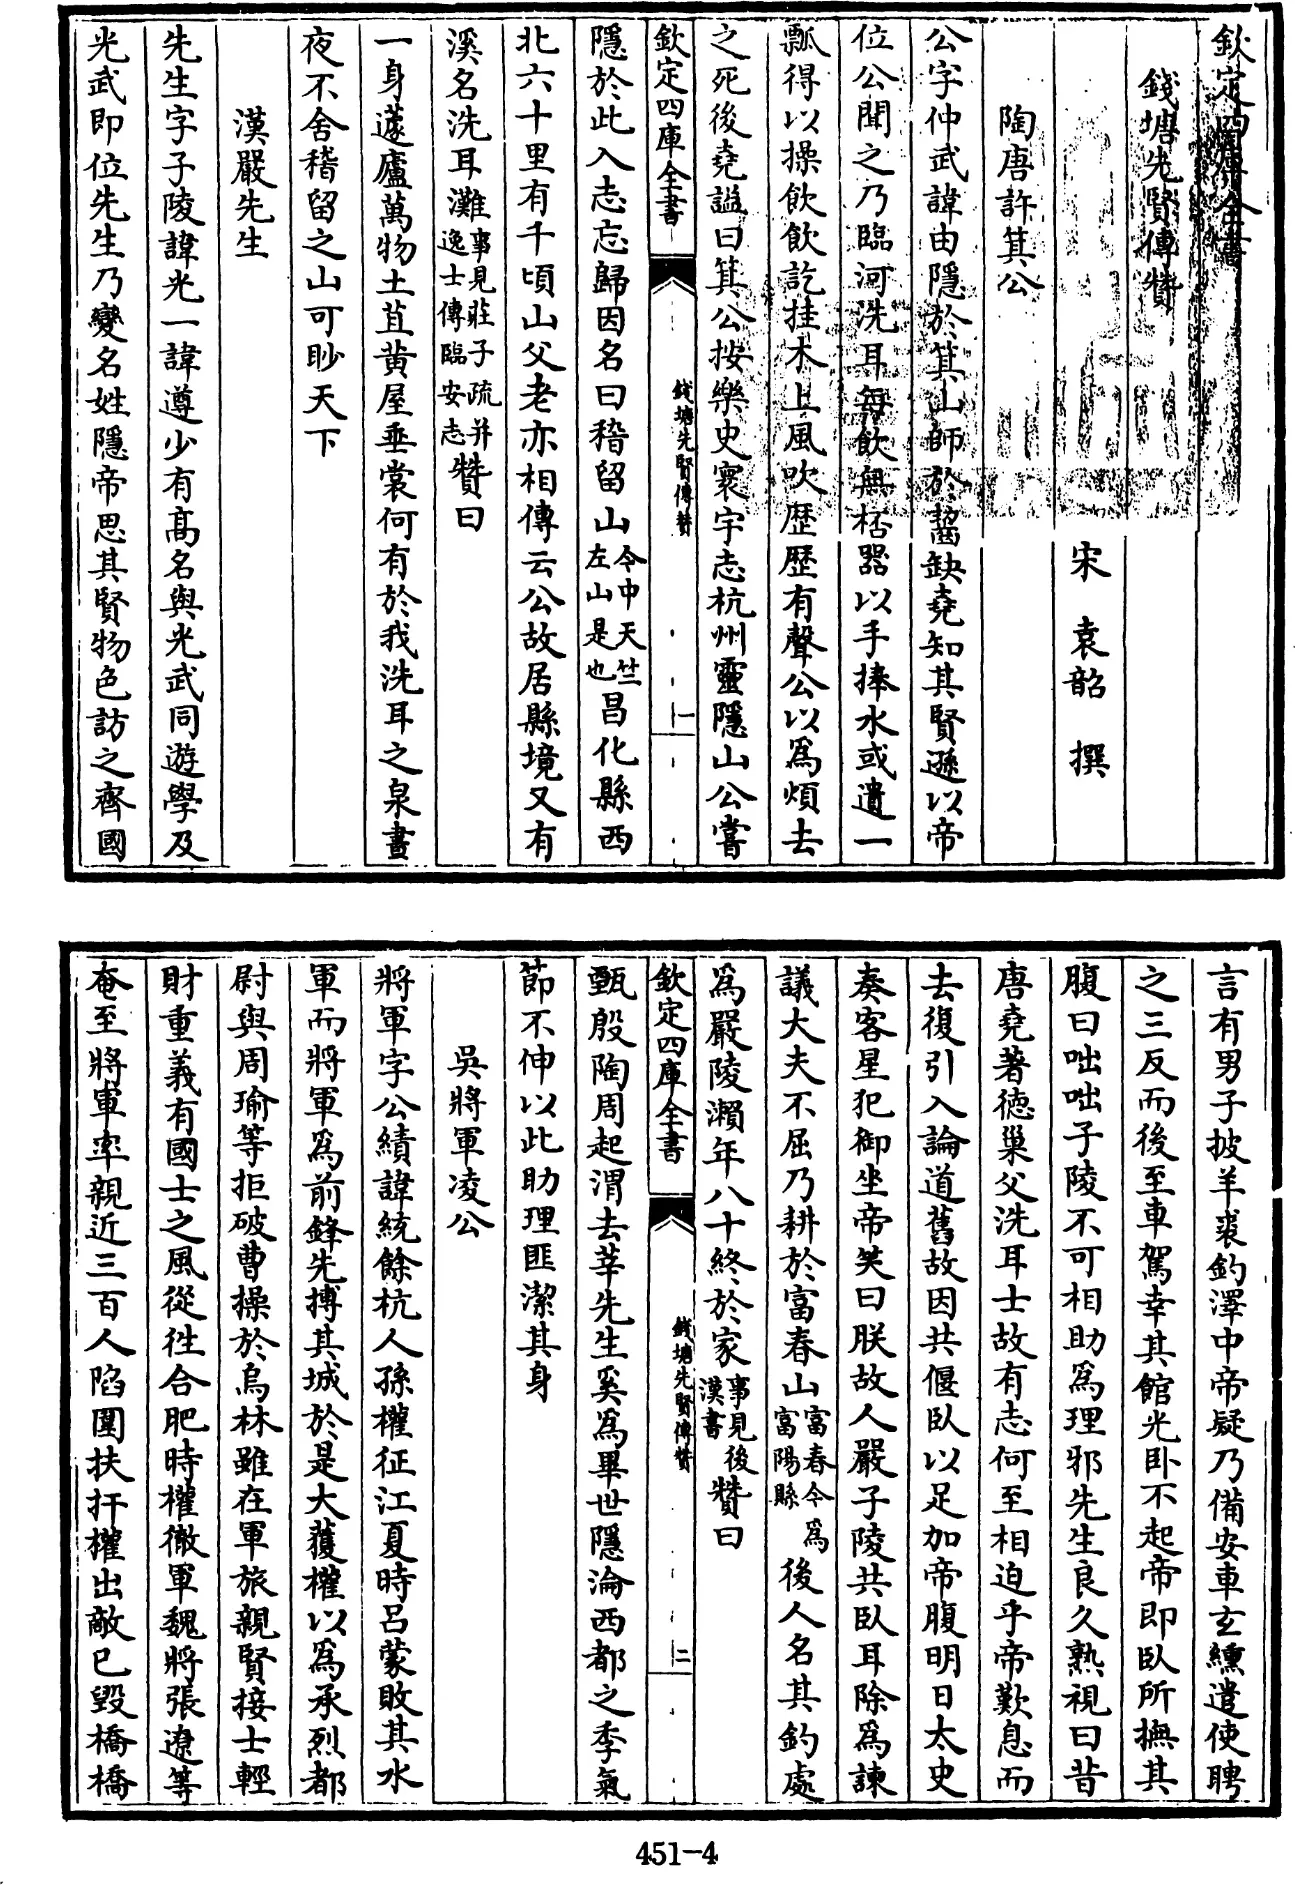 欽定四庫全書
錢塘先賢傳贊
宋 袁韶 撰
陶唐許箕公
公字仲武諱由隱於箕山師於齧缺堯知其賢遜以帝
位公聞之乃臨河洗耳每飲無桮器以手捧水或遺一
瓢得以操飲飲訖挂木上風吹歷歷有聲公以爲煩去
之死後堯謚曰箕公按樂史寰宇志杭州靈隱山公嘗
欽定四庫全書
錢塘先賢傳贊
一
隱於此入志忘歸因名曰稽留山今中天竺左山是也昌化縣西
北六十里有千頃山父老亦相傳云公故居縣境又有
溪名洗耳灘事見莊子疏并逸士傳臨安志贊曰
一身蘧廬萬物土苴黄屋垂裳何有於我洗耳之泉晝
夜不舍稽留之山可眇天下
漢嚴先生
先生字子陵諱光一諱遵少有髙名與光武同遊學及
光武即位先生乃變名姓隱帝思其賢物色訪之齊國
言有男子披羊裘釣澤中帝疑乃備安車玄纁遣使聘
之三反而後至車駕幸其館光卧不起帝即臥所撫其
腹曰咄咄子陵不可相助爲理邪先生良久熟視曰昔
唐堯著德巢父洗耳士故有志何至相迫乎帝歎息而
去復引入論道舊故因共偃臥以足加帝腹明日太史
奏客星犯御坐帝笑曰朕故人嚴子陵共臥耳除爲諫
議大夫不屈乃耕於富春山富春今爲富陽縣後人名其釣處
爲嚴陵瀨年八十終於家事見後漢書贊曰
欽定四庫全書
錢塘先賢傳贊
二
甄殷陶周起渭去莘先生奚爲畢世隱淪西都之季氣
節不伸以此助理匪潔其身
吳將軍凌公
將軍字公績諱統餘杭人孫權征江夏時呂蒙敗其水
軍而將軍爲前鋒先搏其城於是大獲權以爲承烈都
尉與周瑜等拒破曹操於烏林雖在軍旅親賢接士輕
財重義有國士之風從徃合肥時權徹軍魏將張遼等
奄至將軍率親近三百人陷圍扶扞權出敵已毀橋橋
451-4